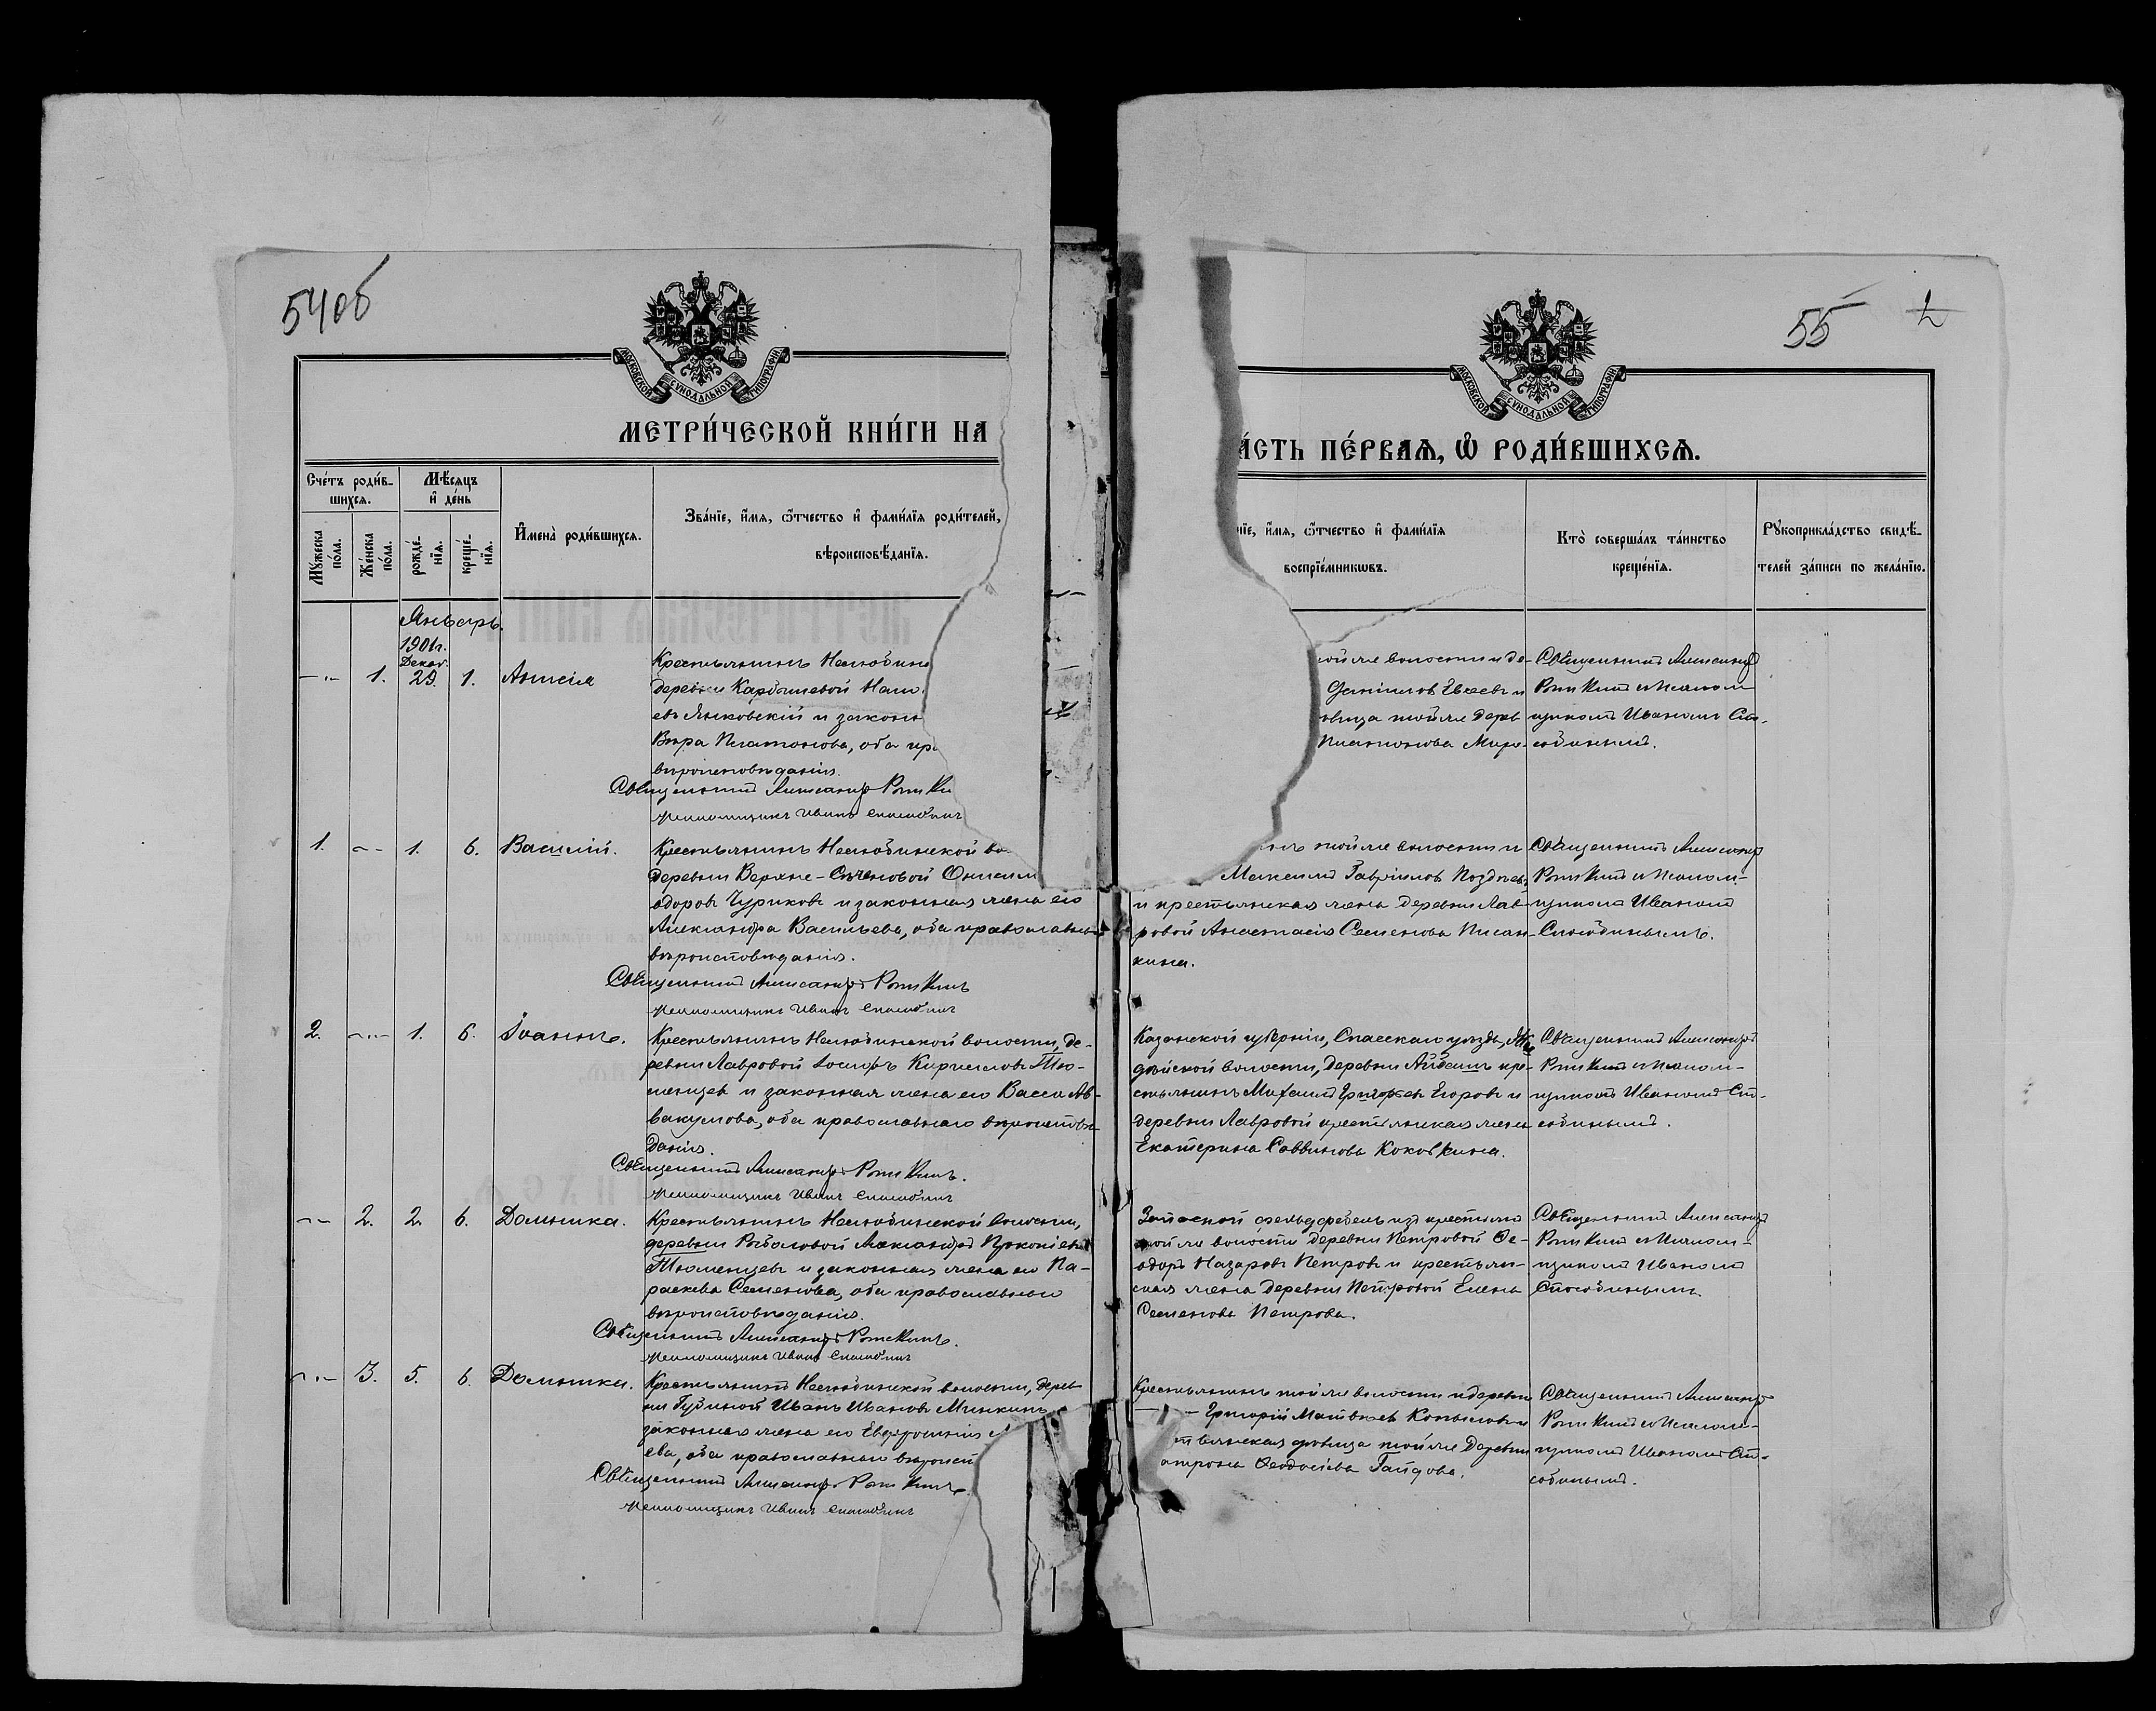 54об
55
2
МОСКОВСКОЙ СѴНОДАЛЬНОЙ ТИПОГРАФІИ
МОСКОВСКОЙ СѴНОДАЛЬНОЙ ТИПОГРАФІИ
МЕТРИ́ЧЕСКОЙ КНИ́ГИ НА
А́СТЬ ПЕ́РВАѦ, Ѡ҆ РОДИ́ВШИХСѦ.
Сче́тъ роди́в-
шихсѧ.
Мѣ́сѧцъ
и҆ де́нь
Мꙋ́жеска
по́ла.
Же́нска
по́ла.
рожде́-
нїѧ.
креще́-
нїѧ.
И҆мена̀ роди́вшихсѧ.
Зва́нїе, и҆́мѧ, ѻ҆́тчество и҆ фами́лїѧ роди́телей,
вѣроисповѣ́данїѧ.
нїе, и҆́мѧ, ѻ҆́тчество и҆ фами́лїѧ
воспрїе́мникѡвъ.
Кто̀ соверша́лъ та́инство
креще́нїѧ.
Рꙋкоприкла́дство свидѣ́-
телей за́писи по жела́нїю.
Январь.
1901г.
Декаб.
— 1. 29. 1. Анисія
Крестьянинъ Нелюбин
деревни Карбышевой
евъ Янковскій и законн
Вѣра Платонова, оба пр
вѣроисповѣданія.
Священникъ Александръ
Псаломщикъ Иванъ Способинъ
той же волости и де-
Даніилов Евсеевъ и
овица той же дерев
Платонова
Священникъ Александр
и Псалом
щикомъ Иваномъ Спо-
собинымъ.
1. — 1. 6. Василій.
Крестьянинъ Нелюбинской во
деревни Верхне-Сѣченовой Онисим
одоровъ Чуриковъ и законная жена его
Александра Васильева, оба православна
вѣроисповѣданія.
Священникъ Александръ
Псаломщикъ Иванъ Способинъ
нъ той же волости и
Максимъ Гавріиловъ Поздѣевъ
и крестьянская жена деревни Лав-
ровой Анастасія Семенова Писан-
кина.
Священникъ Александр
и Псалом-
щикомъ Иваномъ
Способинымъ.
2. — 1. 6. Іоаннъ.
Крестьянинъ Нелюбинской волости, де-
ревни Лавровой Іосифъ Кирилловъ Тю-
менцев и законная жена его Васса Ав-
вакумова, оба православнаго вѣроисповѣ
данія.
Священникъ Александръ
Псаломщикъ Иванъ Способинъ
Казанской губерніи, Спасскаго уѣзда,
волости, деревни кре-
стьянинъ Михаилъ Григорьев Егоровъ и
деревни Лавровой крестьянская жена
Екатерина Саввинова Коковкина.
Священникъ Александръ
и Псалом-
щикомъ Иваномъ Спо-
собинымъ.
— 2. 2. 6. Домника.
Крестьянинъ Нелюбинской волости,
деревни Рыбаловой Александръ Прокопіевъ
Тюменцевъ и законная жена его Па-
раскева Семенова, оба православнаго
вѣроисповѣданія.
Священникъ Александръ
Псаломщикъ Иванъ Способинъ
Запасной фельдфебель изъ крестьянъ
той же волости деревни Петровой Ѳе-
одоръ Назаровъ Петровъ и крестьян-
ская жена деревни Петровой Елена
Семенова Петрова.
Священникъ Александръ
и Псалом-
щикомъ Иваномъ
Способинымъ.
— 3. 5. 6. Домника.
Крестьянинъ Нелюбинской волости, дерев
ни Губиной Иванъ Ивановъ
законная жена его Евфросинія
ева, оба православнаго вѣроисп
Священникъ Александръ
Псаломщикъ Иванъ Способинъ
Крестьянинъ той же волости и деревни
Григорій Матвѣевъ Копыловъ и
тьянская дѣвица той же деревни
атрона Ѳеодосіева Гайдова.
Священникъ Александр
и Псалом-
щикомъ Иваномъ Спо-
собинымъ.